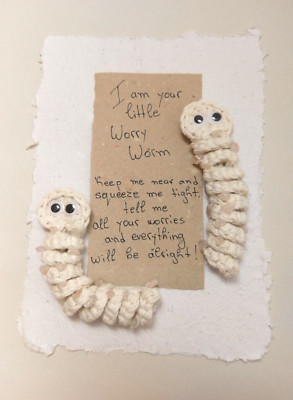 I am your
little
Worry
Worm
Keep me near and
squeeze me tight,
tell me
all your worries
and everything
will be alright!